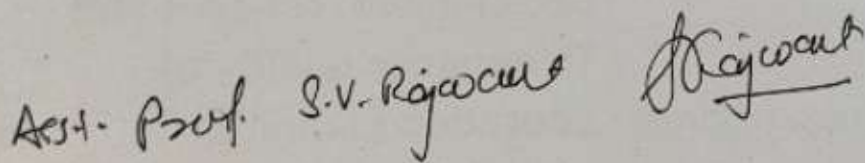 Asst. Prof. S.V. Rajwant SRajwant